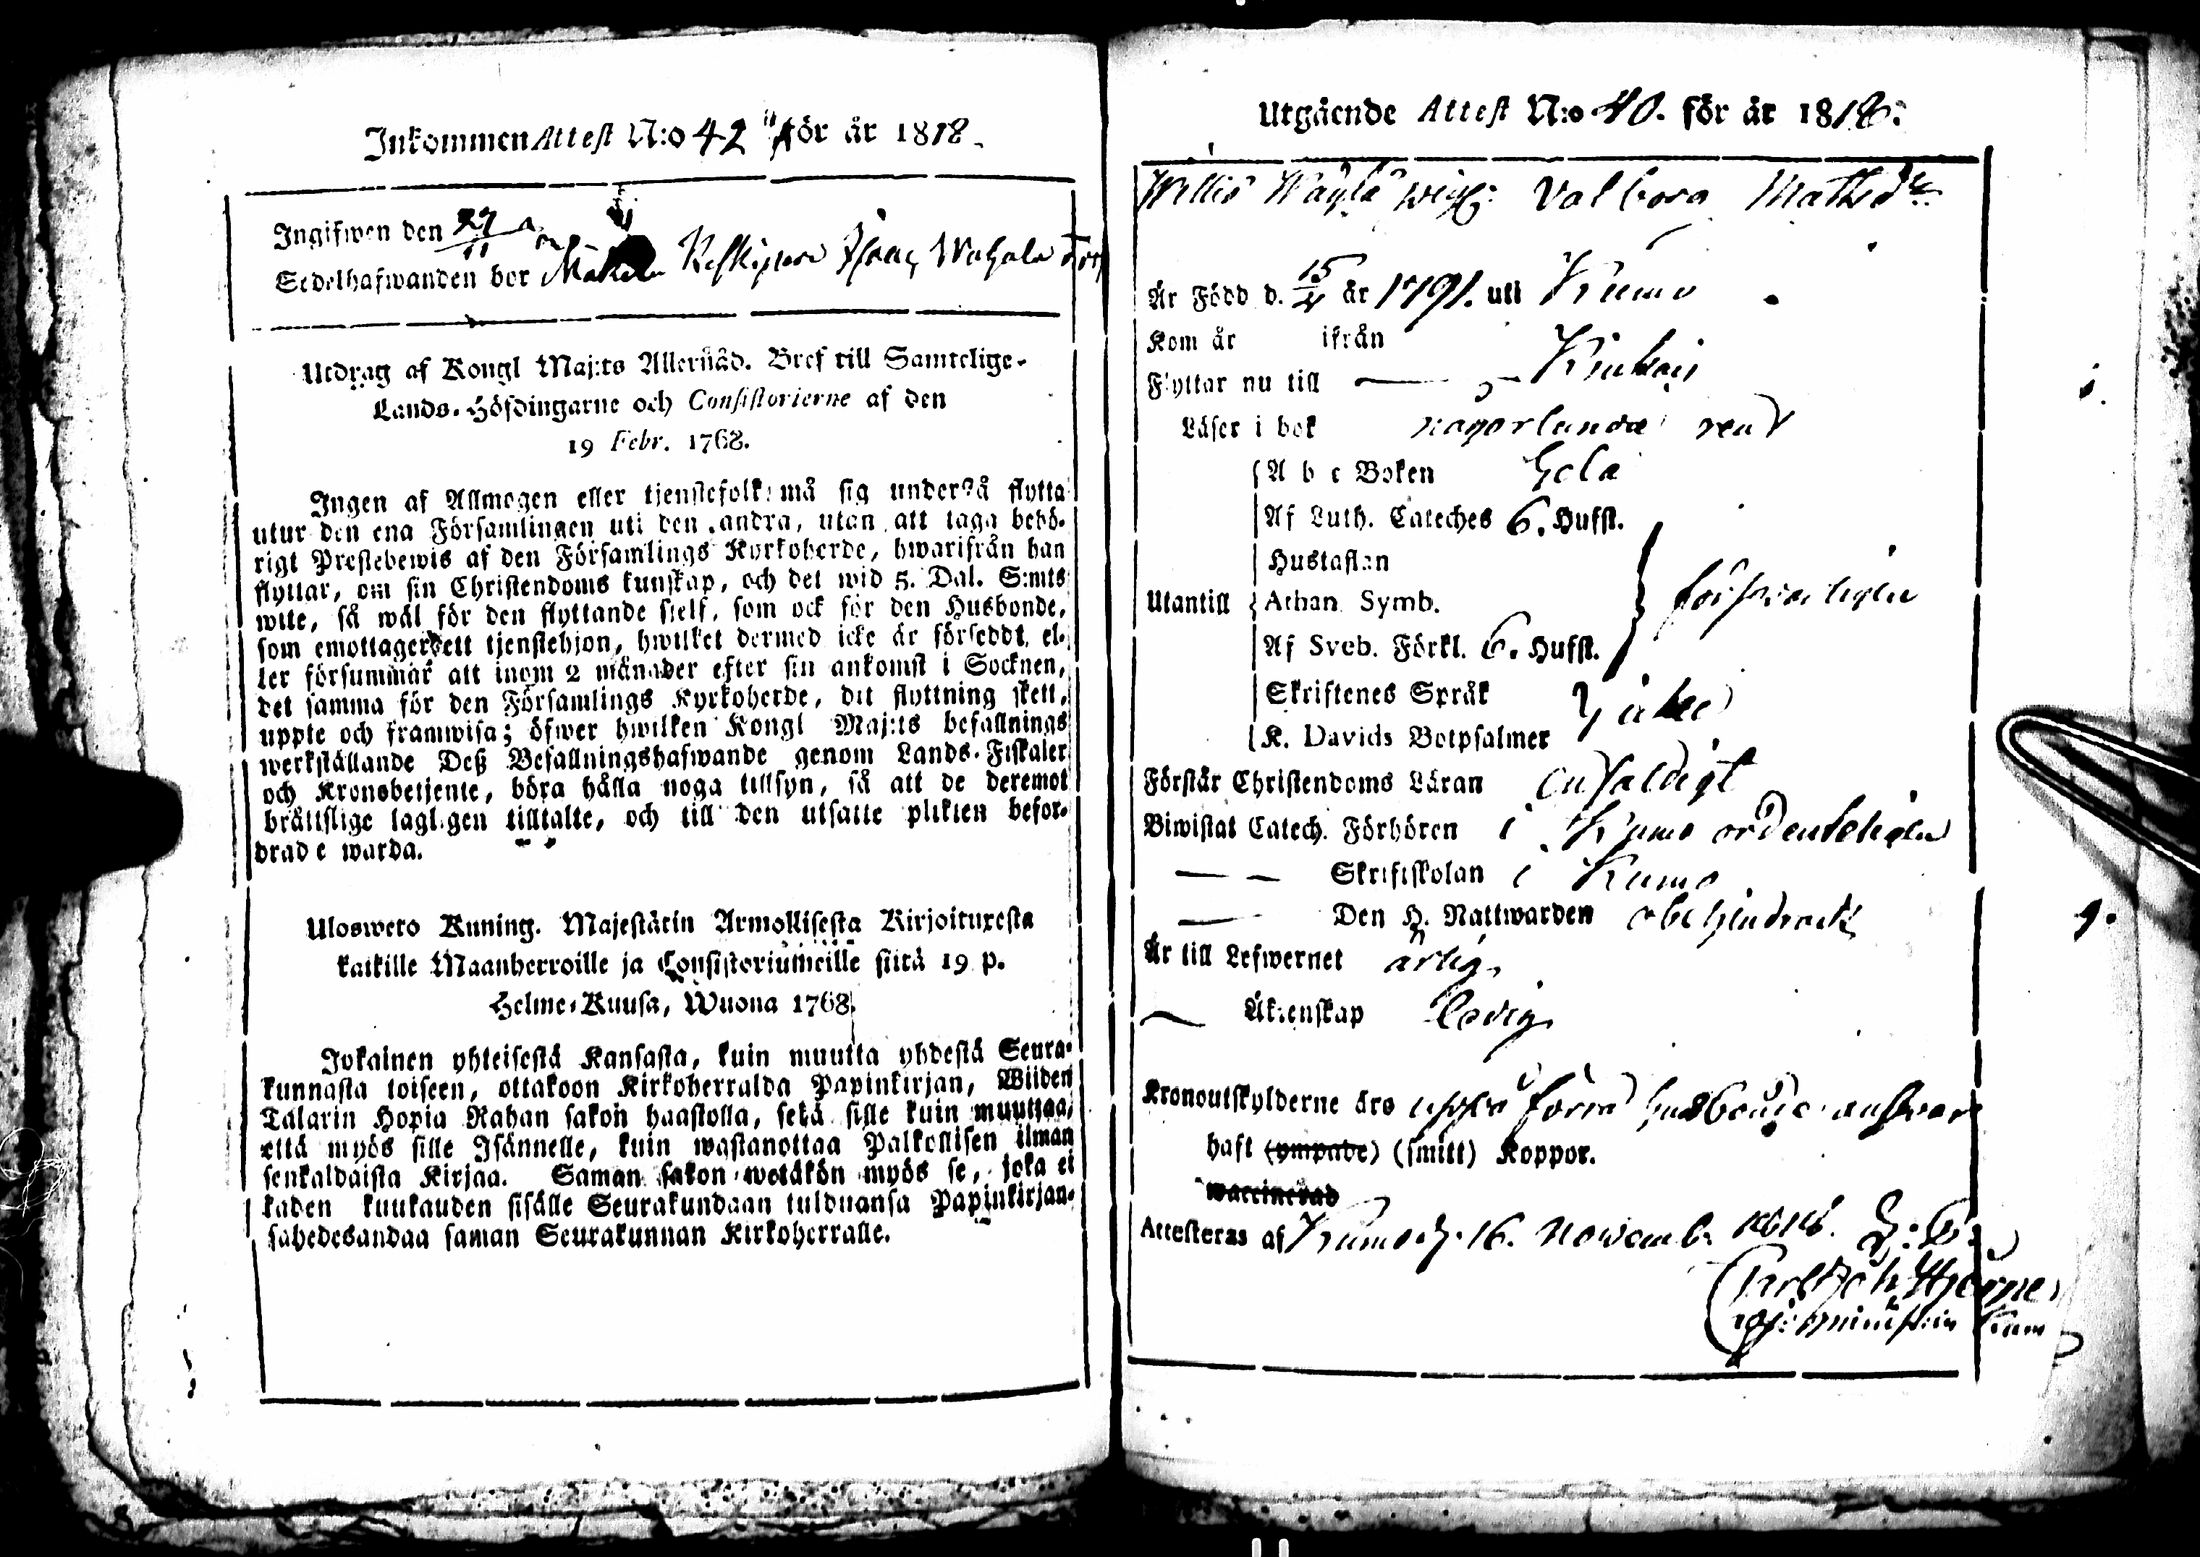 Inkommen Attest N:o 42 för år 1818.
Ingifwen den 27/11
Sedelhafwanden bor
Utdrag af Kongl Maj:ts Allernåd. Bref till Samtelige
Lands-Höfdingarne och Consistorierne af den
19 Febr. 1768.
Ingen af Allmogen eller tjenstefolk må sig understå flytta
utur den ena Församlingen uti den andra, utan att taga behö-
rigt Prestebewis af den Församlings Kyrkoherde, hwarifrån han
flyttar, om sin Christendoms kunskap, och det wid 5. Dal. S:mts
wite, så wäl för den flyttande sjelf, som ock för den Husbonde,
som emottager ett tjenstehjon, hwilket dermed icke är försedt, el-
ler försummar att inom 2 månader efter sin ankomst i Socknen,
det samma för den Församlings Kyrkoherde, dit flyttning skett,
uppte och framwisa; öfwer hwilken Kongl Maj:ts befallnings
werkställande Deß Befallningshafwande genom Lands-Fiskaler
och Kronobetjente, böra hålla noga tillsyn, så att de deremot
bråttslige lagligen tilltalte, och till den utsatte plikten befor-
drade warda.
Uloswero Kuning. Majestätin Armollisesta Kirjoituxesta
kaikille Maanherroille ja Consistoriumeille siitä 19 p.
Helme-Kuusa, Wuona 1768.
Jokainen yhteisestä Kansasta, kuin muutta yhdestä Seura-
kunnasta toiseen, ottakoon Kirkoherralda Papinkirjan, Wiiden
Talarin Hopia Rahan sakon haastolla, sekä sille kuin muuttaa,
että myös sille Isännelle, kuin wastanottaa Palkollisen ilman
senkaldaista Kirjaa. Saman sakon wetäkön myös se, joka ei
kaden kuukauden sisälle Seurakundaan tulduansa Papinkirjan-
sa hedesandaa saman Seurakunnan Kirkoherralle.
Utgående Attest N:o 40. för år 1818.
Valborg Mathsdr
Är Född d. 15/4 år 1791. uti Kumo
Kom år ifrån
Flyttar nu till Kiukais
Läser i bok någorlunda rent
A b c Boken hela
Af Luth. Cateches 6. Hufst.
Hustaflan
Utantill Athan. Symb. försvarligen
Af Sveb. Förkl. 6. Hufst.
Skriftenes Språk
K. Davids Botpsalmer
Förstår Christendoms Läran enfaldigt
Biwistat Catech. Förhören i Kumo ordenteligen
— — Skriftskolan i Kumo
— Den H. Nattwarden obehindradt
Är till Lefwernet ärlig
— Äktenskap ledig
Kronoutskylderne äro uppå förra husbondes answar
haft (ympade) (smitt) Koppor.
waccinerad
Attesteras af Kumo d. 16. Novemb. 1818.